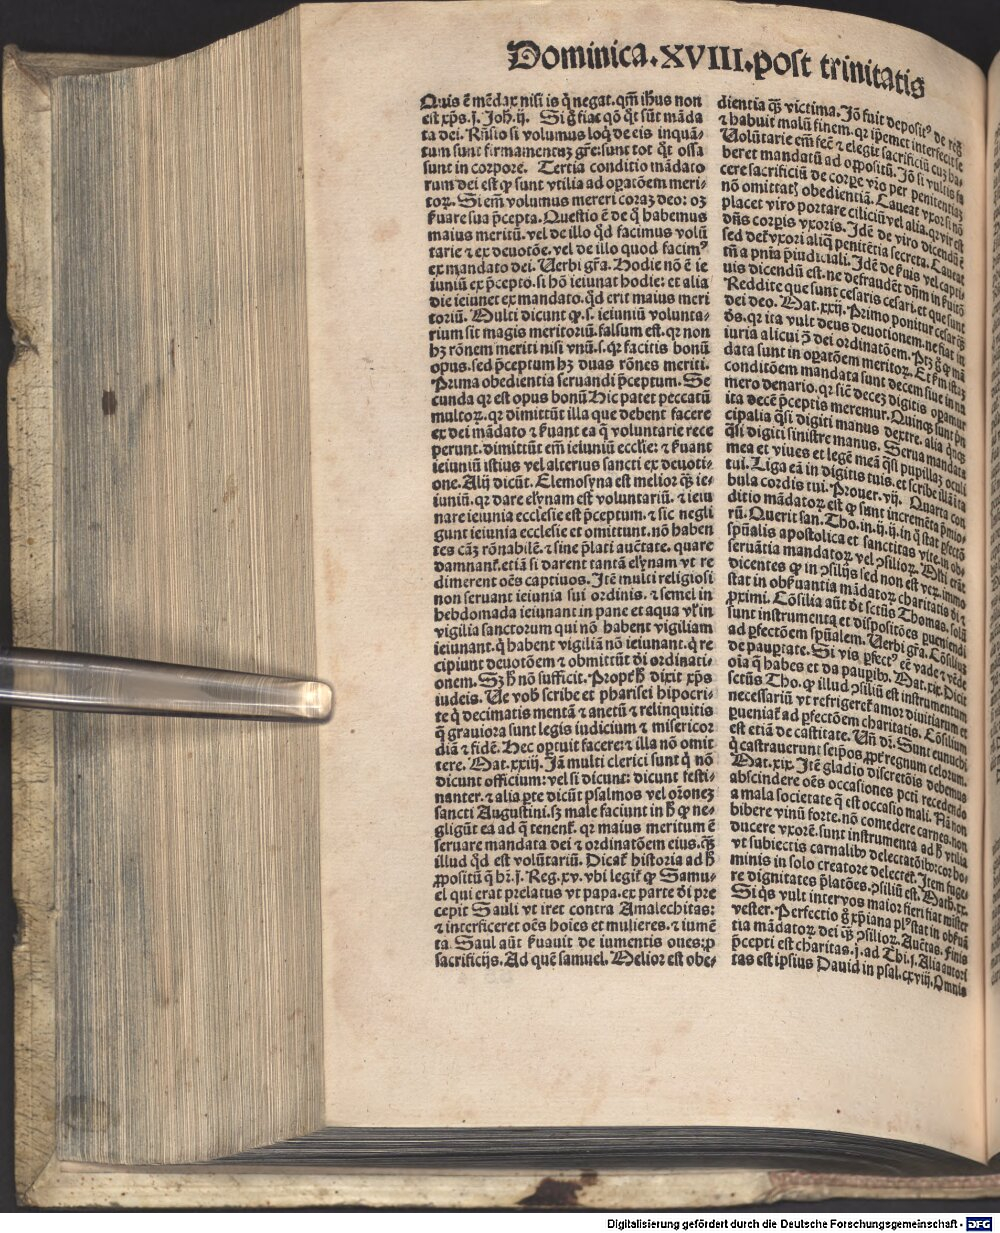 Dominica.XVIII.post trinitatis
Quis ē mēdax nisi is q̄ negat.qm̄ ihus non
est xp̄s.j.Joh.ij. Si q̄ fiat qō q̄t sūt māda
ta dei. Rn̄sio si volumus loq̄ de eis inquā-
tum sunt firmamentuꝫ gr̄e:sunt tot q̄t ossa
sunt in corpore. Tertia conditio mādato
rum dei est ꝙ sunt vtilia ad oꝑatōem meri-
toꝝ. Si em̄ volumus mereri coraꝫ deo: oꝫ
ẜuare sua p̄cepta. Questio ē de q̄ habemus
maius meritū. vel de illo q̄d facimus volū
tarie ⁊ ex deuotōe. vel de illo quod facimꝰ
ex mandato dei. Uerbi gr̄a. Hodie nō ē ie
iuniū ex p̄cepto. si hō ieiunat hodie: et alia
die ieiunet ex mandato. q̄d erit maius meri
toriū. Multi dicunt ꝙ.s.ieiuniū volunta-
rium sit magis meritoriū. falsum est. qꝛ non
hꝫ rōnem meriti nisi vnū.s.qꝛ facitis bonū
opus. sed p̄ceptum hꝫ duas rōnes meriti.
Prima obedientia seruandi p̄ceptum. Se
cunda qꝛ est opus bonū Hic patet peccatū
multoꝝ. qꝛ dimittūt illa que debent facere
ex dei mādato ⁊ ẜuant ea q̄ voluntarie rece
perunt. dimittūt em̄ ieiuniū eccl̄ie: ⁊ ẜuant
ieiuniū istius vel alterius sancti ex deuoti-
one. Alij dicūt. Elemosyna est melior qͣꝫ ie-
iuniū. qꝛ dare elynam est voluntariū. ⁊ ieiu
nare ieiunia ecclesie est p̄ceptum. ⁊ sic negli
gunt ieiunia ecclesie et omittunt. nō haben
tes cāꝫ rōnabilē. ⁊ sine p̄lati auc̄tate. quare
damnant̄. etiā si darent tantā elynam vt re
dimerent oēs captiuos. Itē multi religiosi
non seruant ieiunia sui ordinis. ⁊ semel in
hebdomada ieiunant in pane et aqua vl̓ in
vigilia sanctorum qui nō habent vigiliam
ieiunant. q̄ habent vigiliā nō ieiunant. q̄ re
cipiunt deuotōem ⁊ obmittūt dī ordinati-
onem. Sꝫ ħ nō sufficit. Propt̓ ħ dixit xp̄s
iudeis. Ue vob̄ scribe et pharisei hipocri-
te q̄ decimatis mentā ⁊ anetū ⁊ relinquitis
q̄ grauiora sunt legis iudicium ⁊ misericor
diā ⁊ fidē. Hec oꝑtuit facere: ⁊ illa nō omit
tere. Mat.xxiij. Jā multi clerici sunt q̄ nō
dicunt officium: vel si dicunt: dicunt festi-
nanter. ⁊ alia ꝑte dicūt psalmos vel orōneꝫ
sancti Augustini. sꝫ male faciunt in ħ ꝙ ne-
gligūt ea ad q̄ tenent̄. qꝛ maius meritum ē
seruare mandata dei ⁊ ordinatōem eius. qͣꝫ
illud q̄d est volūtariū. Dicat̄ historia ad ħ
ꝓpositū q̄ hr̄.j.Reg.xv. vbi legit̄ ꝙ Samu-
el qui erat prelatus vt papa. ex parte dī pre
cepit Sauli vt iret contra Amalechitas:
⁊ interficeret oēs hoīes et mulieres. ⁊ iumē
ta. Saul aūt ẜuauit de iumentis oues: ꝓ
sacrificijs. Ad quē samuel. Melior est obe-
dientia qͣꝫ victima. Jō fuit depositꝰ de reḡ
⁊ habuit malū finem. qꝛ ip̄emet interfecit se
Uolūtarie em̄ fec̄ ⁊ elegit sacrificiū cuꝫ ha-
beret mandatū ad oppositū. Jō si vultis fa
cere sacrificiū de corꝑe vr̄o per penitentiaꝫ
nō omittat̄ obedientiā. Caueat vxor si nō
placet viro portare ciliciū vel alia. qꝛ vir est
dn̄s corꝑis vxoris. Idē de viro dicendū ē
sed det̄ vxori aliq̄ penitētia secreta. Caueat
tn̄ a pn̄ia p̄iudiciali. Idē de ẜuis vel capti-
uis dicendū est. ne defraudēt dn̄m in ẜuitō
Reddite que sunt cesaris cesari. et que sunt
dei deo. Mat.xxij. Primo ponitur cesar qͣꝫ
dꝰs. qꝛ ita vult deus deuotionem. ne fiat in
iuria alicui ꝯ dei ordinatōem. Ptꝫ ḡ ꝙ mā
data sunt in oꝑatōem meritoꝝ. Et ẜm istaꝫ
conditōem mandata sunt decem siue in nu
mero denario. qꝛ sicut deceꝫ digitis oꝑamur
ita decē p̄ceptis meremur. Quinqꝫ sunt pn̄
cipalia qͣsi digiti manus dextre. alia q̄nqꝫ
qͣsi digiti sinistre manus. Serua mandata
mea et viues et legē meā qͣsi pupillaꝫ oculi
tui. Liga eā in digitis tuis. et scribe illā in ta
bula cordis tui. Prouer.vij. Quarta con
ditio mādatoꝝ est ꝙ sunt incremēta p̄mio-
rū. Querit san. Tho. in.ij.ij. in q̄ stat ꝑfectō
spūalis apostolica et sanctitas vite. in ob-
seruātia mandatoꝝ vel ꝯsilioꝝ. Mlti erāt
dicentes ꝙ in ꝯsilijs sed non est veꝝ. immo
stat in obẜuantia mādatoꝝ charitatis dī ⁊
ꝓximi. Cōsilia aūt dt̄ sctūs Thomas. solū
sunt instrumenta et dispositōes ꝑueniendi
ad ꝑfectōem spūalem. Uerbi gr̄a. Cōsiliuꝫ
de pauꝑtate. Si vis ꝑfectꝰ eē vade ⁊ vēde
oīa q̄ habes et da pauꝑibꝰ. Mat.xix. Dicit
sctūs Tho. ꝙ illud ꝯsiliū est instrumentum
necessariū vt refrigeret̄ amor diuitiarum et
ꝑueniat̄ ad ꝑfectōem charitatis. Cōsilium
est etiā de castitate. Un̄ dr̄. Sunt eunuchi
q̄ castrauerunt seip̄os ꝓpt̓ regnum celorum.
Mat.xix. Itē gladio discretōis debemus
abscindere oēs occasiones pcti recedendo
a mala societate q̄ est occasio mali. Nā non
bibere vinū forte. nō comedere carnes. non
ducere vxorē. sunt instrumenta ad ħ vtilia
vt subiectis carnalibꝰ delectatōibꝰ: cor ho-
minis in solo creatore delectet̄. Item fuge-
re dignitates p̄latōes. ꝯsiliū est. Math.xx.
Si q̄s vult inter vos maior fieri fiat mister
vester. Perfectio ḡ xp̄iana plꝰ stat in obẜuā
tia mādatoꝝ dei qͣꝫ ꝯsilioꝝ. Auc̄tas. Finis
p̄cepti est charitas.j.ad Thi.j. Alia autori
tas est ipsius Dauid in psal.cxviij. Omnis
Digitalisierung gefördert durch die Deutsche Forschungsgemeinschaft - DFG